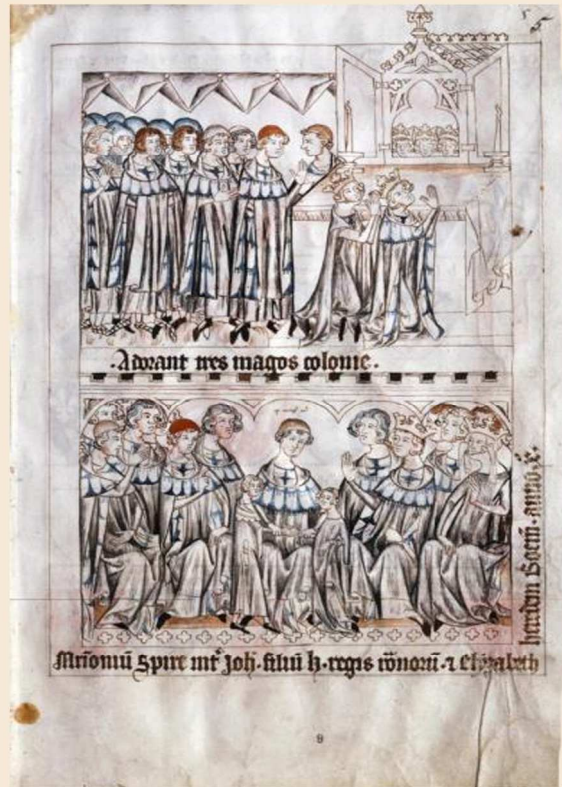 5
·Adorant tres magos colonie·
Mr̄ioniū Spire int̄ Joh̄·filiū h·regis rōnorū·⁊ Elyzabeth
heredem Boem̄·anno·x·
9